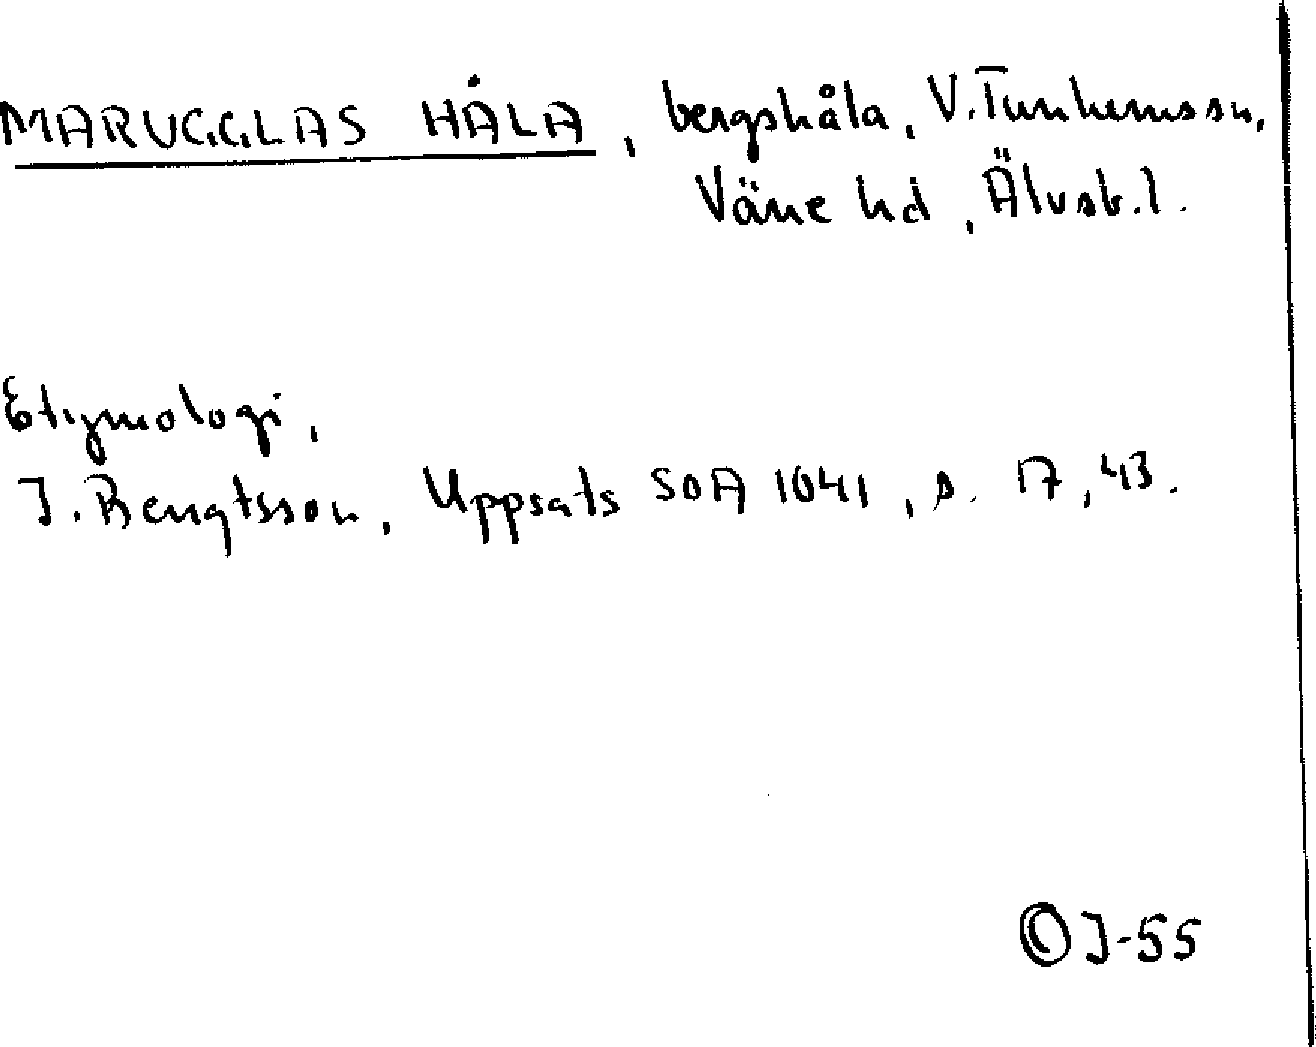 MARUGGLAS HÅLA, bergshåla, V. Tunhemssn,
Väne hd, Älvsb. l.
Etymologi,
J. Bengtsson, Uppsats SOA 1041, s. 17, 43.
© J-55